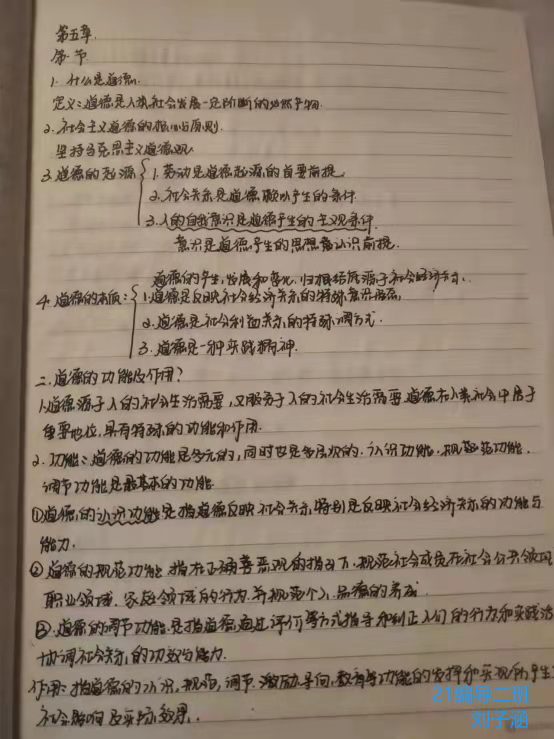 第五章
第一节
1. 什么是道德.
定义:道德是人类社会发展一定阶段的必然产物.
2. 社会主义道德的核心与原则.
坚持马克思主义道德观
3. 道德的起源 1. 劳动是道德起源的首要前提.
2. 社会关系是道德赖以产生的条件.
3. 人的自我意识是道德产生的主观条件.
意识是道德产生的思想认识前提.
道德的产生,发展和变化,归根结底源于社会经济关系.
4. 道德的本质: 1. 道德是反映社会经济关系的特殊意识形态,
2. 道德是社会利益关系的特殊调节方式.
3. 道德是一种实践精神.
二. 道德的功能及作用?
1. 道德源于人的社会生活需要,又服务于人的社会生活需要.道德在人类社会中居于
重要地位,具有特殊的功能和作用.
2. 功能:道德的功能是多元的,同时也是多层次的.认识功能.规范功能.
调节功能是最基本的功能
①道德的认识功能是指道德反映社会关系,特别是反映社会经济关系的功能与
能力.
②道德的规范功能.指在正确善恶观的指引下.规范社会成员在社会公共领域
职业领域.家庭领域的行为.并规范个人品德的养成.
③.道德的调节功能是指道德通过评价等方式指导和纠正人们的行为和实践活
协调社会关系的功效与能力.
作用:指道德的认识,规范,调节.激励.导向.教育等功能的发挥和实现所产生
社会影响及实际效果.
21编导二班
刘子涵